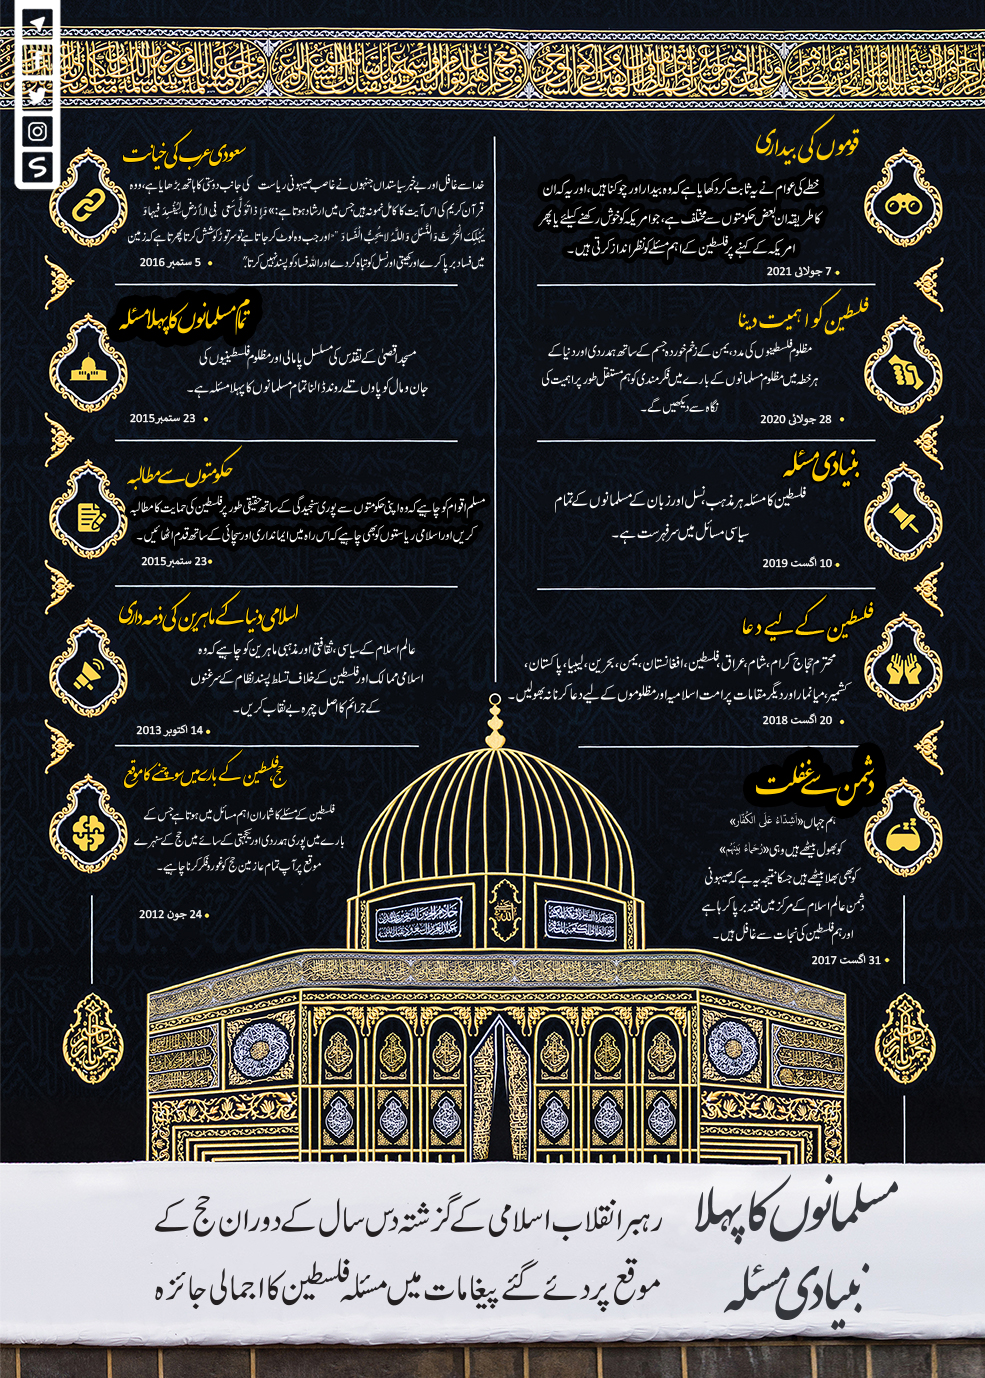 قوموں کی بیداری
خطے کی عوام نے یہ ثابت کر دکھایا ہے کہ وہ بیدار اور چوکنا ہیں، اور یہ کہ ان
کا طریقہ ان بعض حکومتوں سے مختلف ہے، جو امریکہ کو خوش رکھنے کیلئے یا پھر
امریکہ کے کہنے پر فلسطین کے اہم مسئلے کو نظر انداز کرتی ہیں۔
7 جولائی 2021
فلسطین کو اہمیت دینا
مظلوم فلسطینیوں کی مدد، یمن کے زخم خوردہ جسم کے ساتھ ہمدردی اور دنیا کے
ہر خطہ میں مظلوم مسلمانوں کے بارے میں فکرمندی کو ہم مستقل طور پر اہمیت کی
نگاہ سے دیکھیں گے۔
28 جولائی 2020
بنیادی مسئلہ
فلسطین کا مسئلہ ہر مذہب، نسل اور زبان کے مسلمانوں کے تمام
سیاسی مسائل میں سرفہرست ہے۔
10 اگست 2019
فلسطین کے لیے دعا
محترم حجاج کرام، شام، عراق، فلسطین، افغانستان، یمن، بحرین، لیبیا، پاکستان،
کشمیر، میانمار اور دیگر مقامات پر امت اسلامیہ اور مظلوموں کے لیے دعا کرنا نہ بھولیں۔
20 اگست 2018
دشمن سے غفلت
ہم جہاں «اَشِدّاءُ عَلَی الکُفّارِ»
کو بھول بیٹھے ہیں وہی «رُحَماءُ بَینَهُم»
کو بھی بھلا بیٹھے ہیں جسکا نتیجہ یہ ہے کہ صیہونی
دشمن عالم اسلام کے مرکز میں فتنہ برپا کر رہا ہے
اور ہم فلسطین کی نجات سے غافل ہیں۔
31 اگست 2017
سعودی عرب کی خیانت
خدا سے غافل اور بے خبر سیاستداں جنہوں نے غاصب صیہونی ریاست کی جانب دوستی کا ہاتھ بڑھایا ہے، وہ وہ
قرآن کریم کی اس آیت کا کامل نمونہ ہیں جس میں ارشاد ہوتا ہے: «وَ اِذا تَوَلّٰی سَعٰی فِی الاَرضِ لِیُفسِدَ فیها وَ
یُهلِکَ الحَرثَ وَ النَّسلَ وَ اللهُ لا یُحِبُّ الفَساد» "اور جب وہ لوٹ کر جاتا ہے تو سرتوڑ کوشش کرتا پھرتا ہے کہ زمین
میں فساد برپا کرے اور کھیتی اور نسل کو تباہ کر دے اور اللہ فساد کو پسند نہیں کرتا"
5 ستمبر 2016
تمام مسلمانوں کا پہلا مسئلہ
مسجد اقصیٰ کے تقدس کی مسلسل پامالی اور مظلوم فلسطینیوں کی
جان و مال کو پاوں تلے روند ڈالنا تمام مسلمانوں کا پہلا مسئلہ ہے۔
23 ستمبر 2015
حکومتوں سے مطالبہ
مسلم اقوام کو چاہیے کہ وہ اپنی حکومتوں سے پوری سنجیدگی کے ساتھ حقیقی طور پر فلسطین کی حمایت کا مطالبہ
کریں اور اسلامی ریاستوں کو بھی چاہیے کہ اس راہ میں ایمانداری اور سچائی کے ساتھ قدم اٹھائیں۔
23 ستمبر 2015
اسلامی دنیا کے ماہرین کی ذمہ داری
عالم اسلام کے سیاسی، ثقافتی اور مذہبی ماہرین کو چاہیے کہ وہ
اسلامی ممالک اور فلسطین کے خلاف تسلط پسند نظام کے سرغنوں
کے جرائم کا اصل چہرہ بے نقاب کریں۔
14 اکتوبر 2013
حج، فلسطین کے بارے میں سوچنے کا موقع
فلسطین کے مسئلے کا شمار ان اہم مسائل میں ہوتا ہے جس کے
بارے میں پوری ہمدردی اور یکجہتی کے سائے میں حج کے سنہرے
موقع پر آپ تمام عازمین حج کو غور و فکر کرنا چاہیے۔
24 جون 2012
مسلمانوں کا پہلا
بنیادی مسئلہ
رہبر انقلاب اسلامی کے گزشتہ دس سال کے دوران حج کے
موقع پر دئے گئے پیغامات میں مسئلہ فلسطین کا اجمالی جائزہ